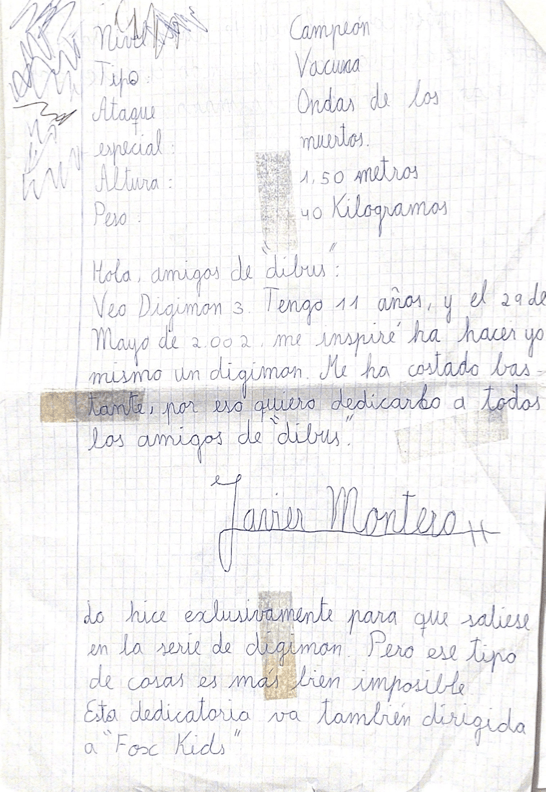 Nivel Campeón
Tipo Vacuna
Ataque Ondas de los
especial: muertos.
Altura: 1,50 metros
Peso. 40 Kilogramos
Hola, amigos de "dibus":
Veo Digimon 3. Tengo 11 años, y el 29 de
Mayo de 2.002. me inspiré ha hacer yo
mismo un digimon. Me ha costado bas-
tante, por eso quiero dedicarlo a todos
los amigos de "dibus".
Javier Montero
Lo hice exclusivamente para que saliese
en la serie de digimon. Pero ese tipo
de cosas es más bien imposible
Esta dedicatoria va también dirigida
a "Fox Kids"